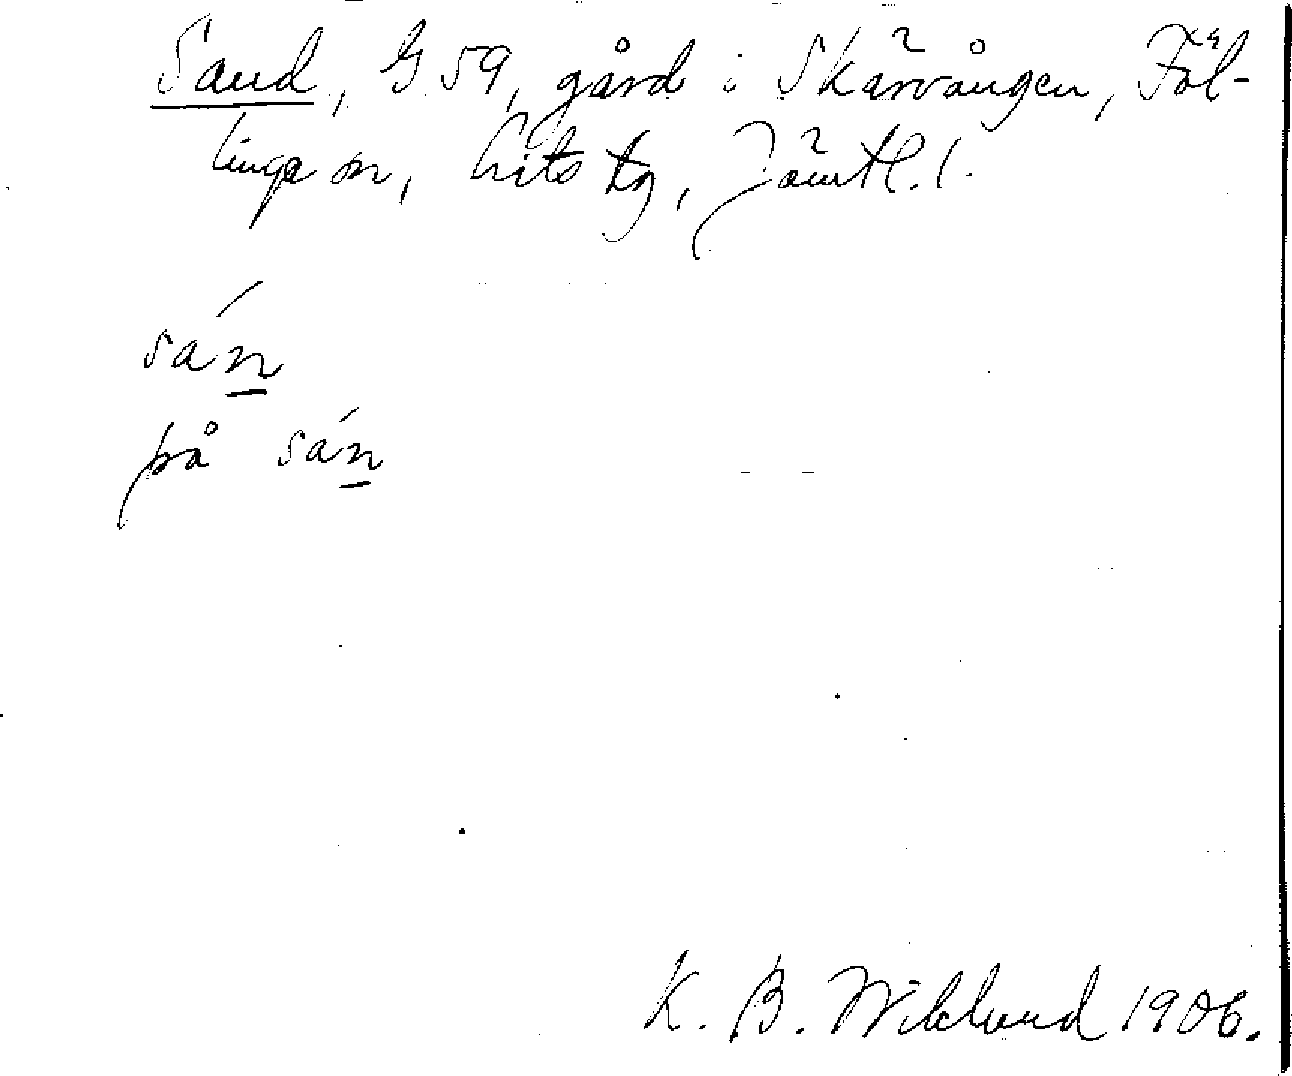 Sand, G 59, gård i Skärvången, Föl-
linge sn, Lits tg, Jämtl. l.
sán
på sán
K. B. Wiklund 1906.